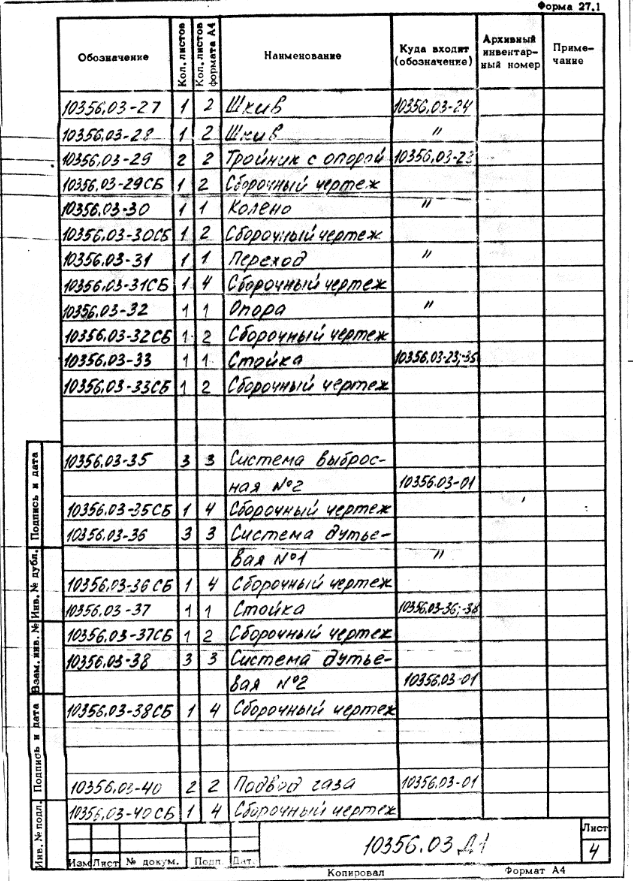 Форма 27.1
Обозначение Кол. листов Кол. листов формата А4 Наименование Куда входит (обозначение) Архивный инвентарный номер Примечание
10356.03-27 1 2 Шкив 10356.03-24
10356.03-28 1 2 Шкив "
10356.03-29 2 2 Тройник с опорой 10356.03-23
10356.03-29СБ 1 2 Сборочный чертеж
10356.03-30 1 1 Колено "
10356.03-30СБ 1 2 Сборочный чертеж
10356.03-31 1 1 Переход "
10356.03-31СБ 1 4 Сборочный чертеж
10356.03-32 1 1 Опора "
10356.03-32СБ 1 2 Сборочный чертеж
10356.03-33 1 1 Стойка 10356.03-23;-35
10356.03-33СБ 1 2 Сборочный чертеж
10356.03-35 3 3 Система выброс-
ная №2 10356.03-01
10356.03-35СБ 1 4 Сборочный чертеж
10356.03-36 3 3 Система дутье-
вая №1 "
10356.03-36СБ 1 4 Сборочный чертеж
10356.03-37 1 1 Стойка 10356.03-36;-38
10356.03-37СБ 1 2 Сборочный чертеж
10356.03-38 3 3 Система дутье-
вая №2 10356.03-01
10356.03-38СБ 1 4 Сборочный чертеж
10356.03-40 2 2 Подвод газа 10356.03-01
10356.03-40СБ 1 4 Сборочный чертеж
Инв. № подл. Подпись и дата Взам. инв. № Инв. № дубл. Подпись и дата
10356.03 Д1
Лист
4
Изм Лист № докум. Подп. Дат.
Копировал Формат А4